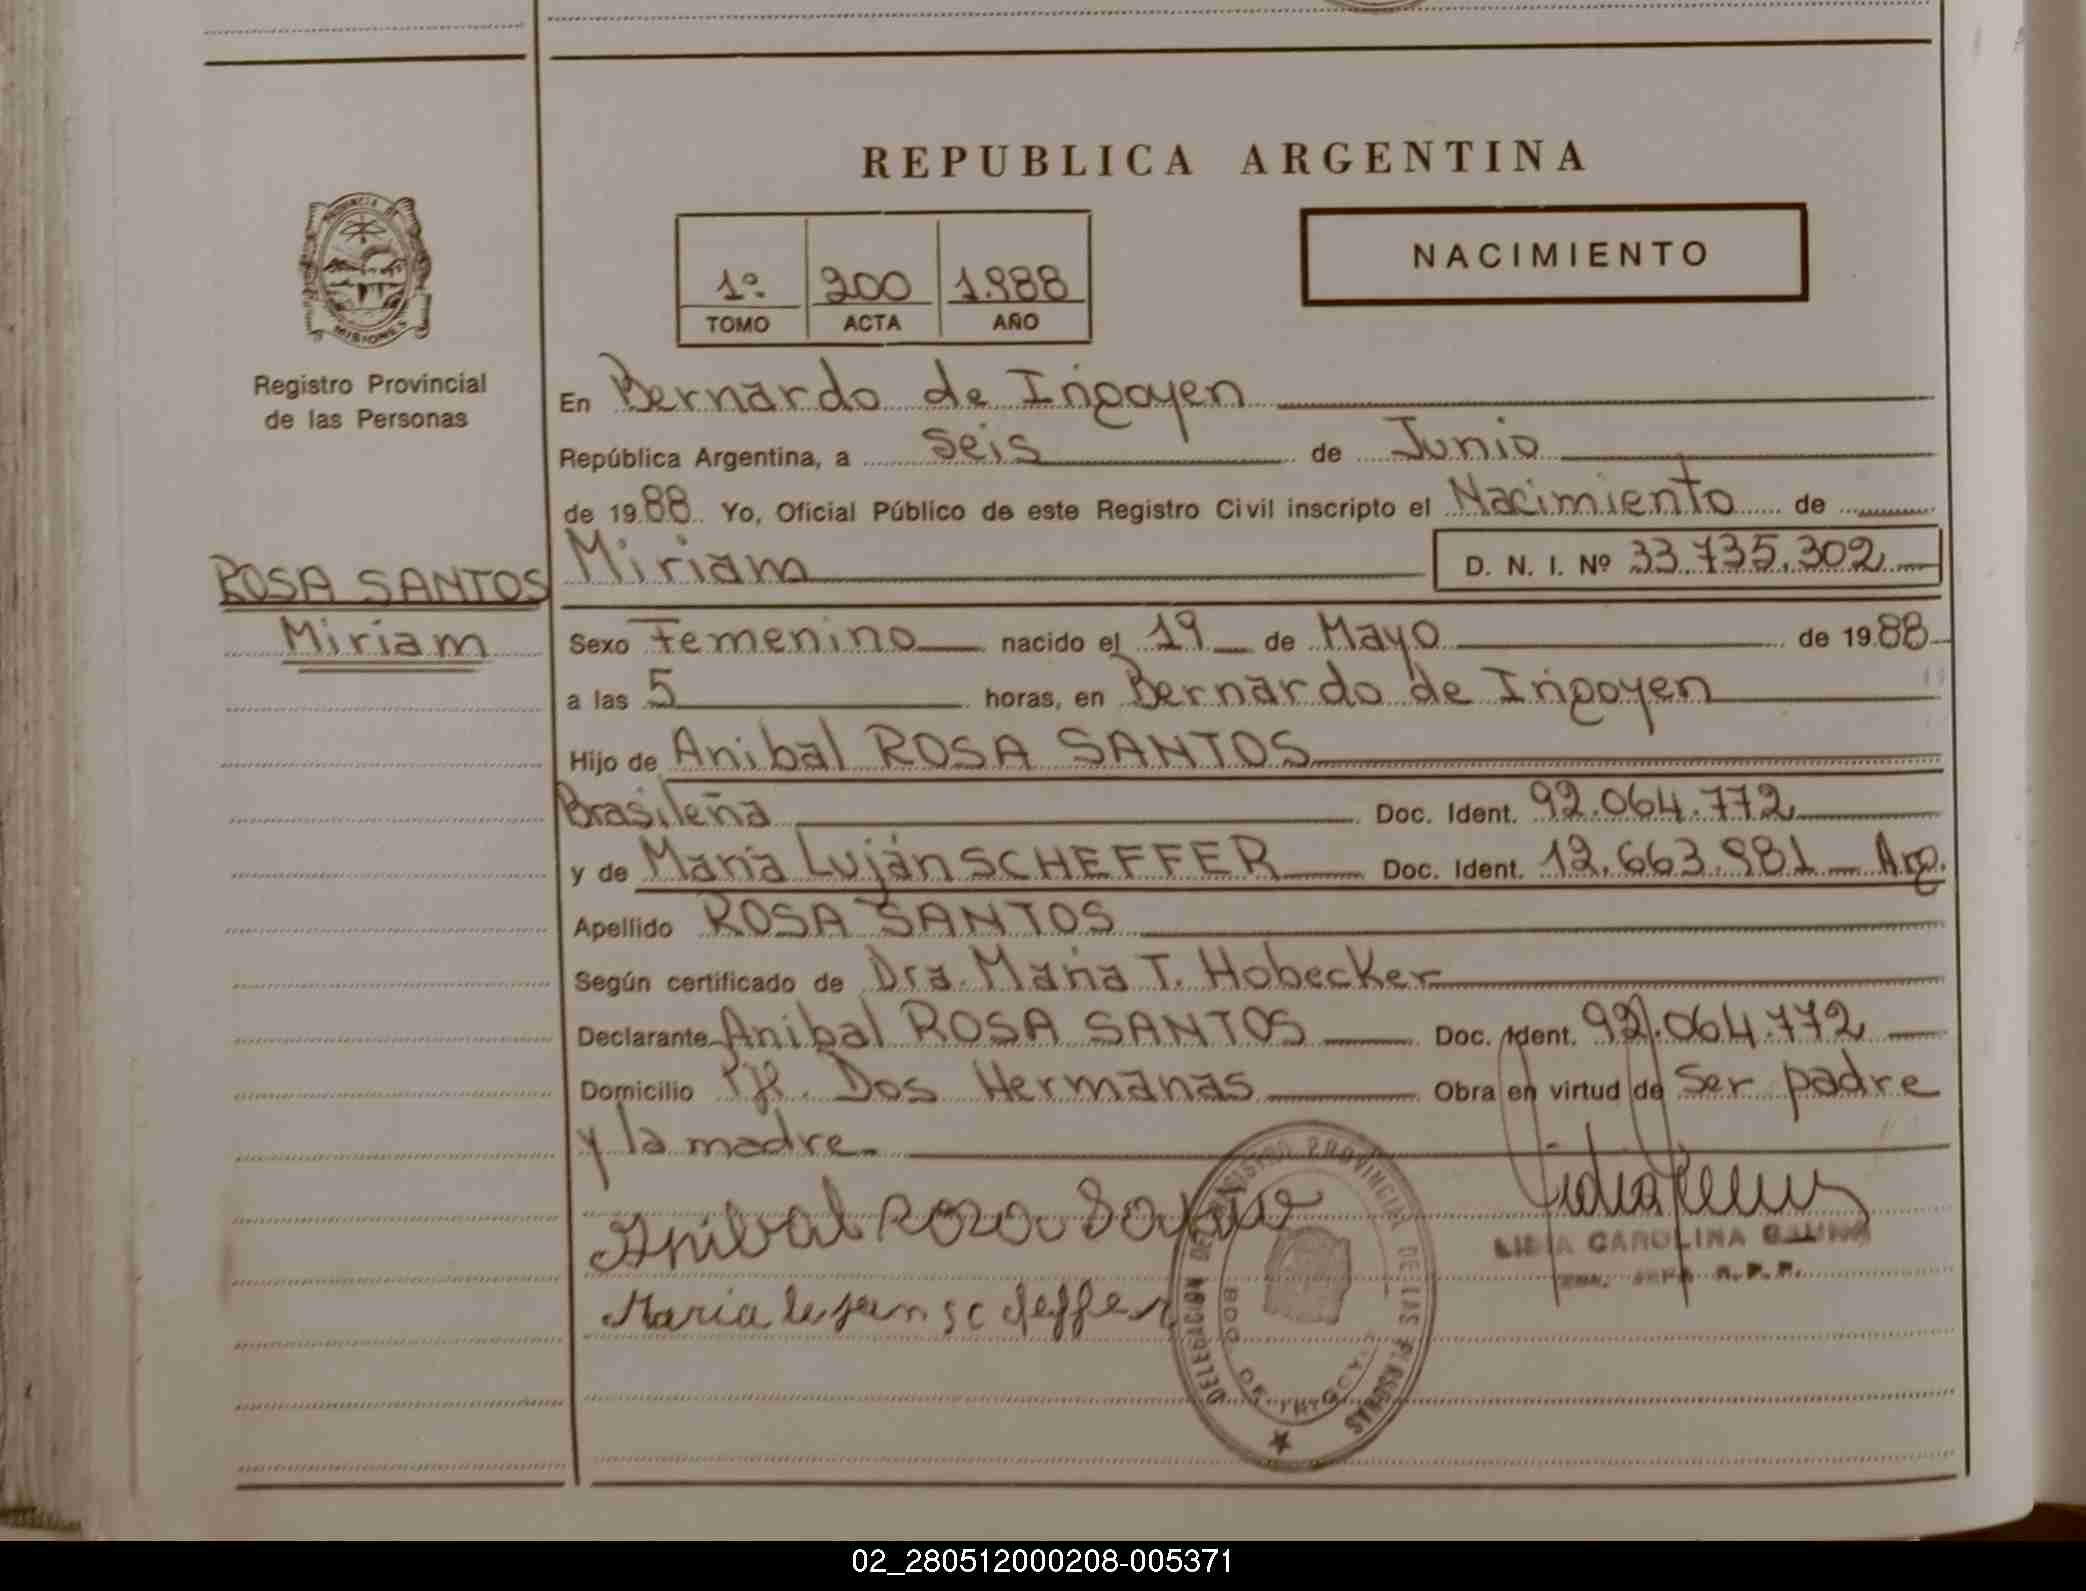 REPUBLICA ARGENTINA
PROVINCIA DE MISIONES
1º 200 1.988
TOMO ACTA AÑO
NACIMIENTO
Registro Provincial
de las Personas
ROSA SANTOS
Miriam
En Bernardo de Irigoyen
República Argentina, a seis de Junio
de 1988 Yo, Oficial Público de este Registro Civil inscripto el Nacimiento de
Miriam D. N. I. Nº 33.735.302
Sexo Femenino nacido el 19 de Mayo de 1988
a las 5 horas, en Bernardo de Irigoyen
Hijo de Anibal ROSA SANTOS
Brasileña Doc. Ident. 92.064.772
y de María Luján SCHEFFER Doc. Ident. 12.663.981 Arg.
Apellido ROSA SANTOS
Según certificado de Dra. María T. Hobecker
Declarante Anibal ROSA SANTOS Doc. Ident. 92.064.772
Domicilio Pje. Dos Hermanas Obra en virtud de ser padre
y la madre.
Anibal Roza Santo
Maria lujan scheffer
CAROLINA
R.P.P.
DELEGACION DEL REGISTRO PROVINCIAL DE LAS PERSONAS
BDO. DE IRIGOYEN
02_280512000208-005371